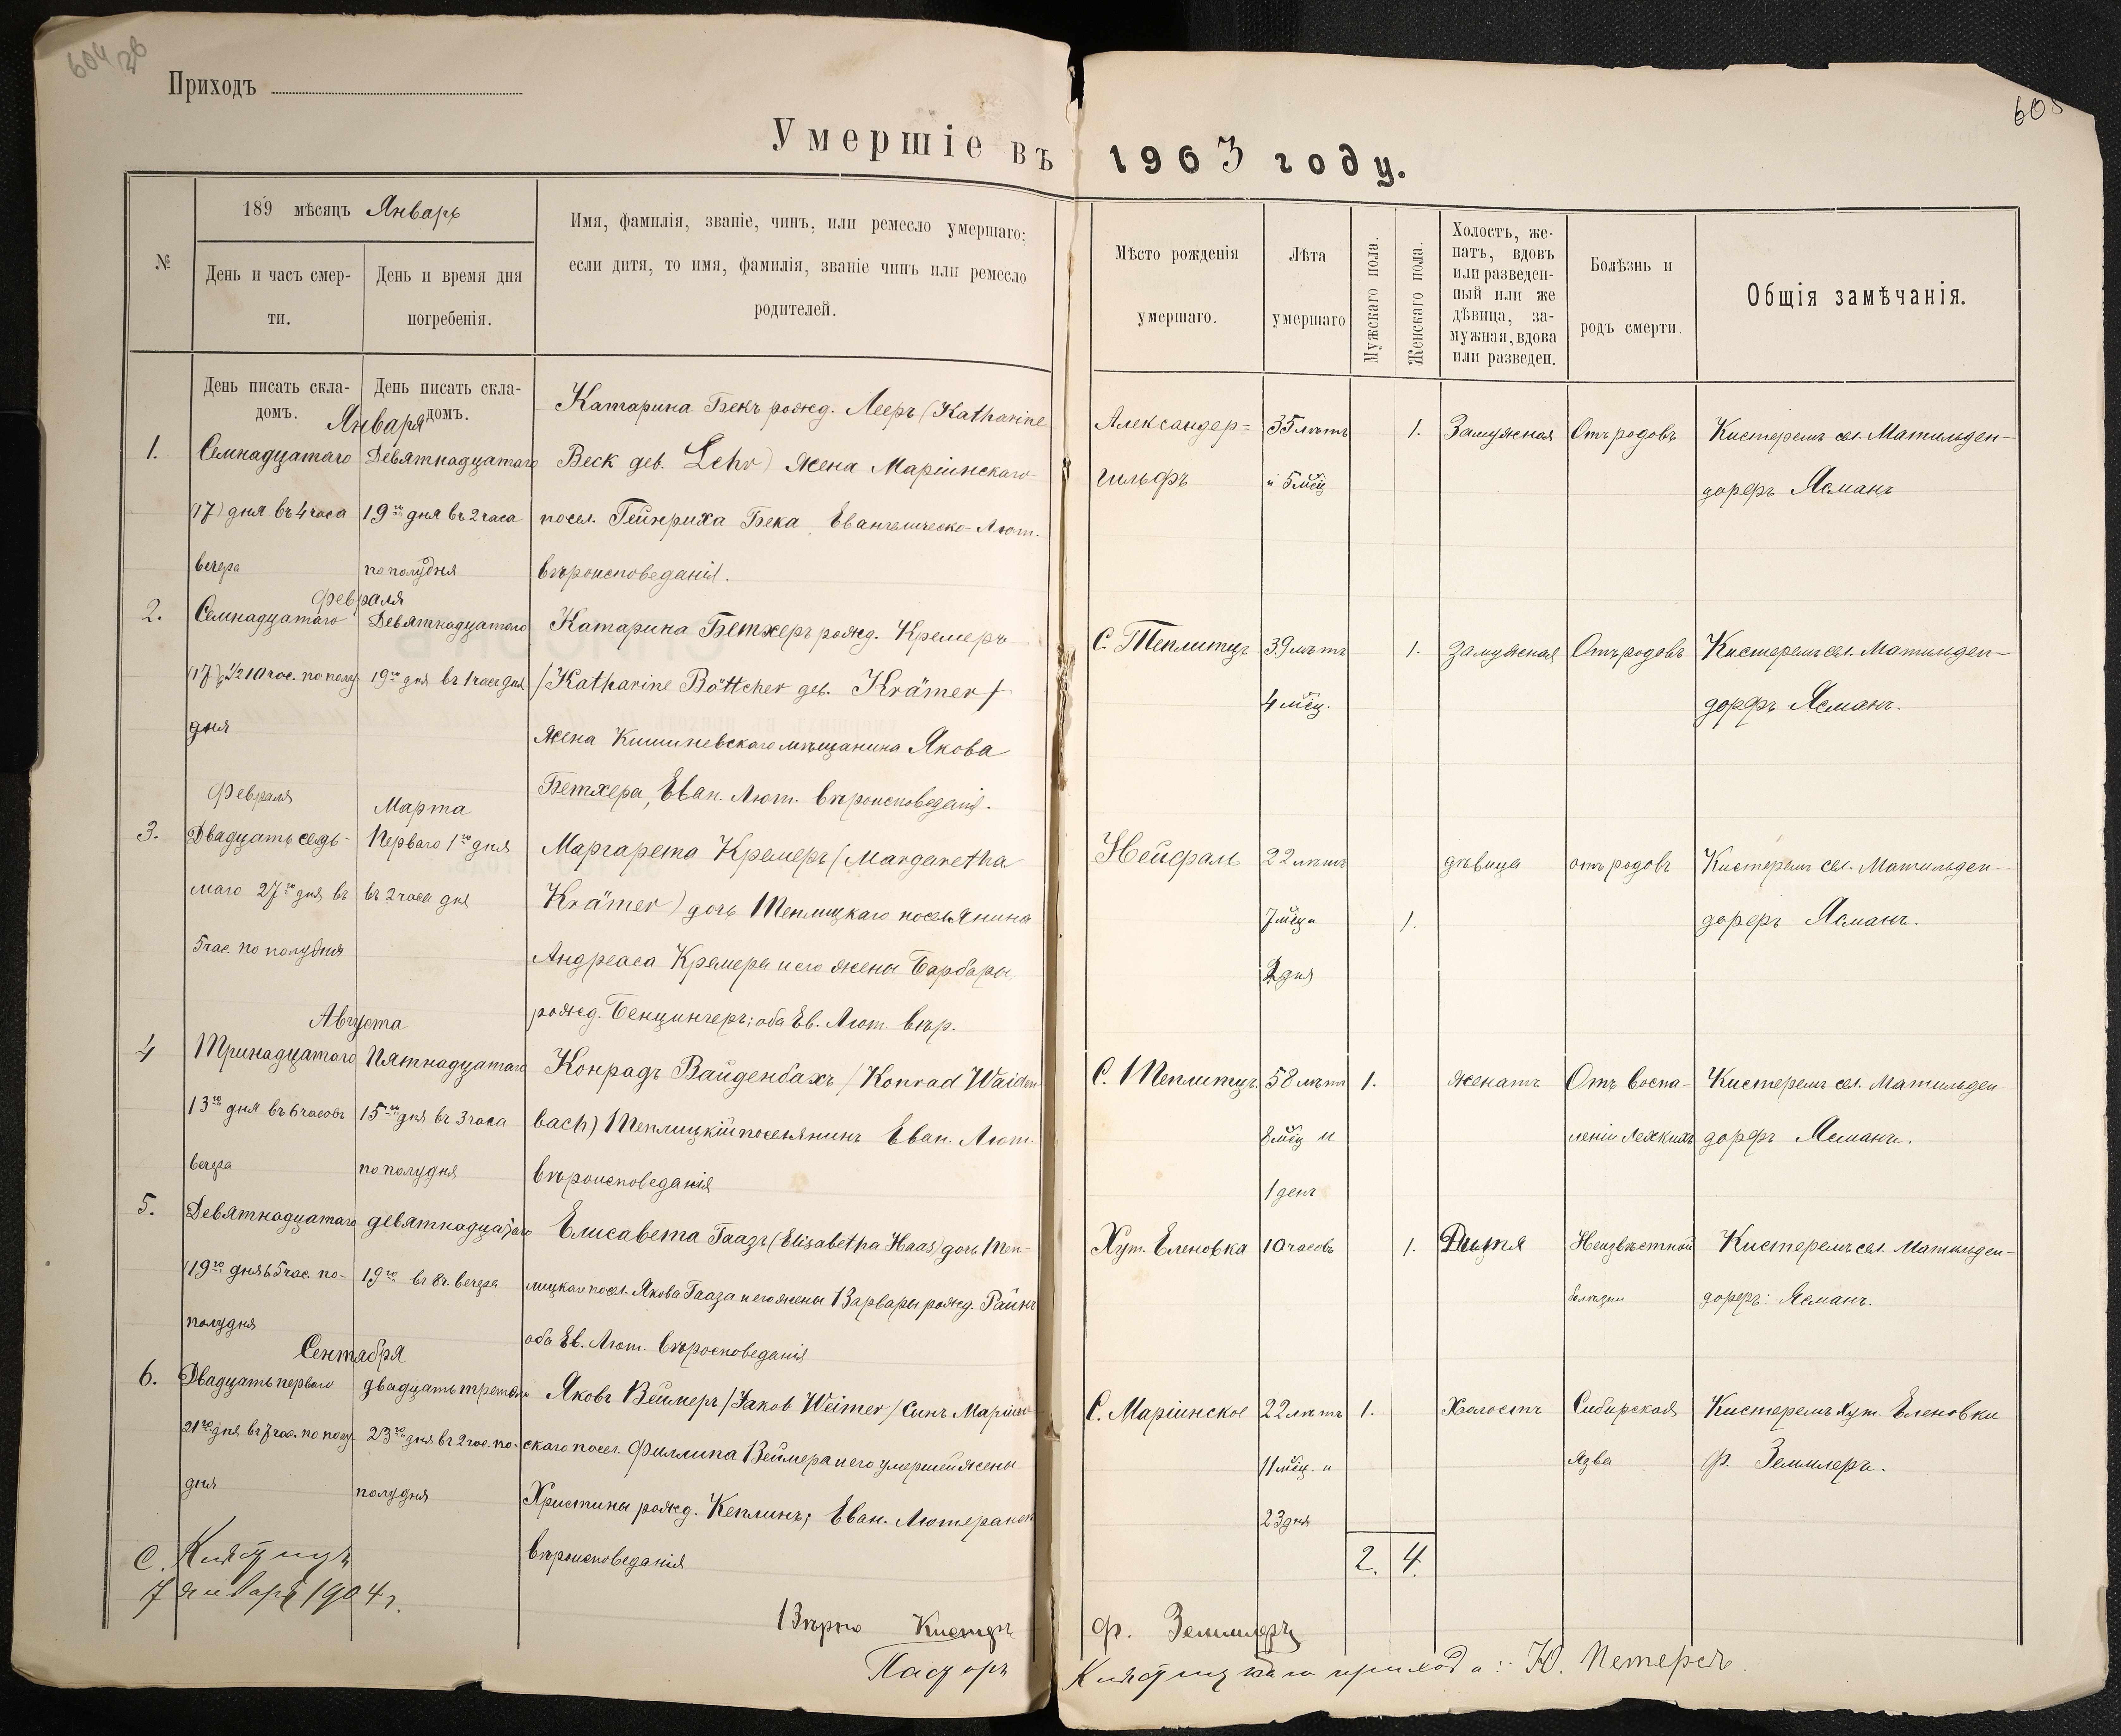 604 об
Приходъ
605
Умершіе въ 1903 году.
№
189 мѣсяцъ Январь
День и часъ смер-
ти.
День и время дня
погребенія.
Имя, фамилія, званіе, чинъ, или ремесло умершаго;
если дитя, то имя, фамилія, званіе чинъ или ремесло
родителей.
Мѣсто рожденія
умершаго.
Лѣта
умершаго
Мужскаго пола.
Женскаго пола.
Холостъ, же-
натъ, вдовъ
или разведен-
ный или же
дѣвица, за-
мужная, вдова
или разведен.
Болѣзнь и
родъ смерти.
Общія замѣчанія.
День писать скла-
домъ.
День писать скла-
домъ.
Января
1.
Семнадцатаго
(17) дня въ 4 часа
вечера
Девятнадцатаго
19го дня въ 2 часа
по полудня
Катарина Бекъ рожд. Лееръ (Katharine
Beck geb. Lehr) жена Маріинскаго
посел. Гейнриха Бека, Евангелическо-Лют.
вѣроисповеданія.
Александер=
гильфъ
35 лѣтъ
и 5 мѣц
1.
Замужная
Отъ родовъ
Кистеремъ сел. Матильден-
дорфъ Ясманъ
Февраля
2.
Семнадцатаго
(17) ½10 час. по полу
дня
Девятнадцатого
19го дня въ 1 часъ дня
Катарина Бетхеръ рожд. Кремеръ
/Katharine Böttcher geb. Krämer/
жена Кишиневскаго мѣщанина Якова
Бетхера, Еван. Лют. вѣроисповеданія.
С. Теплитцъ
39 лѣтъ
4 мѣц.
1.
замужная
Отъ родовъ
Кистеремъ сел. Матильден-
дорфъ Ясманъ.
Февраля
Марта
3.
Двадцать седь-
маго 27го дня въ
5 час. по полудня
Перваго 1го дня
въ 2 часа дня
Маргарета Кремеръ (Margaretha
Krämer) дочь Теплицкаго поселянина
Андреаса Кремера и его жены Барбары
рожд. Бенцингеръ; оба Ев. Лют. вѣр.
Нейфаль
22 лѣтъ
7 мѣц и
2 дня
1.
дѣвица
отъ родовъ
Кистеремъ сел. Матильден-
дорфъ Ясманъ.
Августа
4
Тринадцатаго
13го дня въ 6 часовъ
вечера
Пятнадцатаго
15го дня въ 3 часа
по полудня
Конрадъ Вайденбахъ /Konrad Waiden
bach) Теплицкій поселянинъ Еван. Лют.
вѣроисповеданія
С. Теплитцъ
58 лѣтъ
8 мѣц и
1 день
1.
женатъ
Отъ воспа-
леніи легкихъ
Кистеремъ сел. Матильден-
дорфъ Ясманъ.
5.
Девятнадцатаго
(19го дня в 5 час. по-
полудня
девятнадцатаго
19го въ 8 ч. вечера
Елисавета Гаазъ (Elisabetha Haas) дочь Теп-
лицкаго посел. Якова Гааза и его жены Варвары рожд. Райнъ
оба Ев. Лют. вѣроисповеданія
Хут. Еленовка
10 часовъ
1.
Дитя
Неизвѣстной
болѣзни
Кистеремъ сел. Матильден-
дорфъ: Ясманъ.
Сентября
6.
Двадцать перваго
21го дня въ 7 час. по полу-
дня
двадцать третяго
23го дня въ 2 час. по-
полудня
Яковъ Веймеръ /Jakob Weimer/ Сынъ Маріин
скаго посел. Филлипа Веймера и его умершей жены
Христины рожд. Кеплинъ; Еван. Лютеранск
вѣроисповеданія
С. Маріинское
22 лѣтъ
11 мѣц. и
23 дня
1.
Холостъ
Сибирская
язва
Кистеремъ Хут. Еленовки
Ф. Земмлеръ.
2. 4.
С. Клястицъ
7 января 1904 г.
Вѣрно Кистеръ Ф. Земмлеръ
Пасторъ Клястицкаго прихода: Ю. Петерсъ